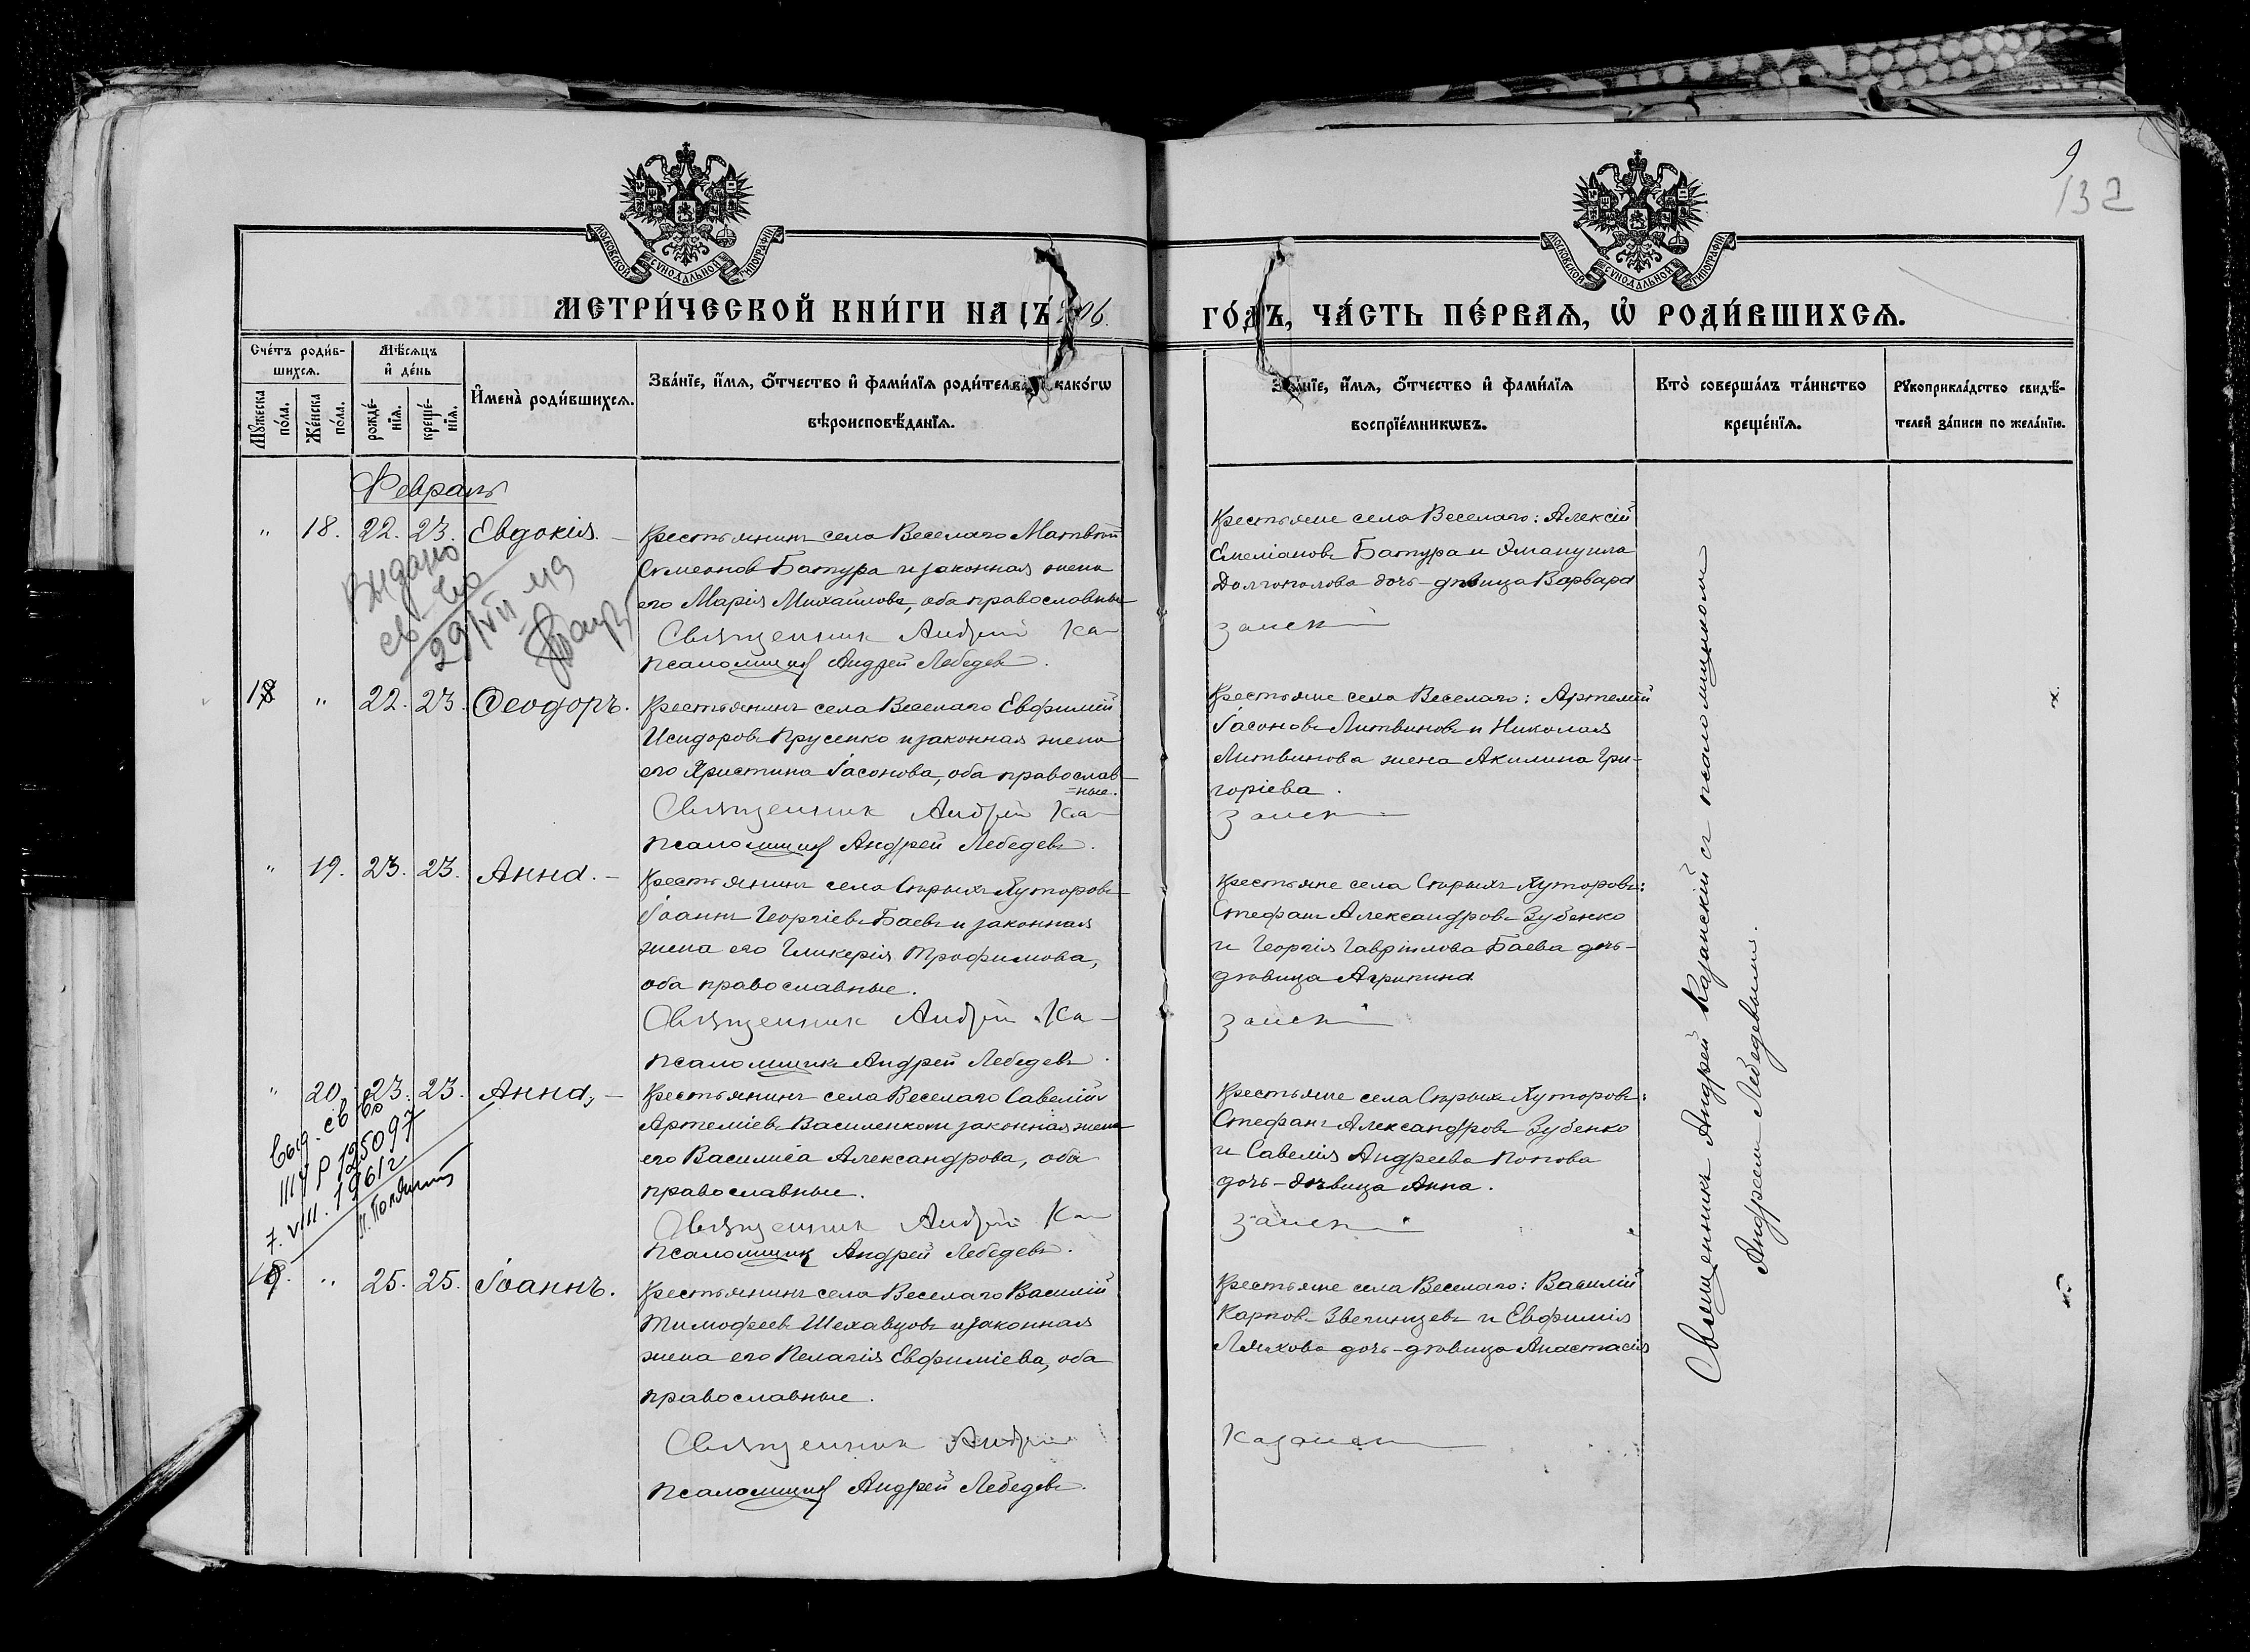 9
132
МОСКОВСКОЙ СѴНОДАЛЬНОЙ ТИПОГРАФІИ
МОСКОВСКОЙ СѴНОДАЛЬНОЙ ТИПОГРАФІИ
МЕТРИ́ЧЕСКОЙ КНИ́ГИ НА
ГО́ДЪ, ЧА́СТЬ ПЕ́РВАѦ, Ѡ҆ РОДИ́ВШИХСѦ.
Сче́тъ роди́в-
шихсѧ.
Мѣ́сѧцъ
и҆ де́нь
Мꙋ́жеска
по́ла.
Же́нска
по́ла.
рожде́-
нїѧ.
креще́-
нїѧ.
И҆мена̀ роди́вшихсѧ.
Зва́нїе, и҆́мѧ, ѻ҆́тчество и҆ фами́лїѧ роди́телей како́гѡ
вѣроисповѣ́данїѧ.
Зва́нїе, и҆́мѧ, ѻ҆́тчество и҆ фами́лїѧ
воспрїе́мникѡвъ.
Кто̀ соверша́лъ та́инство
креще́нїѧ.
Рꙋкоприкла́дство свидѣ́-
телей за́писи по жела́нїю.
Февраль
" 18. 22. 23. Евдокія. –
Крестьянинъ села Веселаго Матвѣй
Симеоновъ Батура и законная жена
его Марія Михаилова, оба православные
Священник Андрей Ка-
псаломщикъ Андрей Лебедевъ.
Крестьяне села Веселаго: Алексій
Емеліановъ Батура и Эмануила
Долгополова дочь-дѣвица Варвара
занскій
Выдано
св-во
29/VII
18 " 22. 23. Ѳеодоръ.
Крестьянинъ села Веселаго Евфимій
Исидоровъ Прусенко и законная жена
его Христина Іасонова, оба православ-
=ные.
Священник Андрей Ка-
псаломщикъ Андрей Лебедевъ.
Крестьяне села Веселаго: Артемій
Іасоновъ Литвиновъ и Николая
Литвинова жена Акилина Гри-
горіева.
занскій
" 19. 23. 23. Анна. –
Крестьянинъ села Старыхъ Хуторовъ
Іоаннъ Георгіевъ Баевъ и законная
жена его Гликерія Трофимова,
оба православные.
Священник Андрей Ка-
псаломщикъ Андрей Лебедевъ.
Крестьяне села Старыхъ Хуторовъ:
Стефанъ Александровъ Зубенко
и Георгія Гавріилова Баева дочь-
дѣвица Агрипина
занскій
" 20. 23. 23. Анна, –
Крестьянинъ села Веселаго Савелій
Артеміевъ Василенко и законная жена
его Василиса Александрова, оба
православные.
Священник Андрей Ка-
псаломщикъ Андрей Лебедевъ.
Крестьяне села Старыхъ Хуторовъ:
Стефанъ Александровъ Зубенко
и Савелія Андреева Попова
дочь-дѣвица Анна.
занскій
Выд. св-во
III УР 125097
7. VIII. 1961 г
" 25. 25. Іоаннъ.
Крестьянинъ села Веселаго Василій
Тимофеевъ Шехавцовъ и законная
жена его Пелагія Евфиміева, оба
православные.
Священник Андрей
псаломщикъ Андрей Лебедевъ.
Крестьяне села Веселаго: Василій
Карповъ Звегинцевъ и Евфимія
Ляхова дочь-дѣвица Анастасія
Казанскій
Священникъ Андрей Казанскій съ псаломщикомъ
Андреемъ Лебедевымъ.